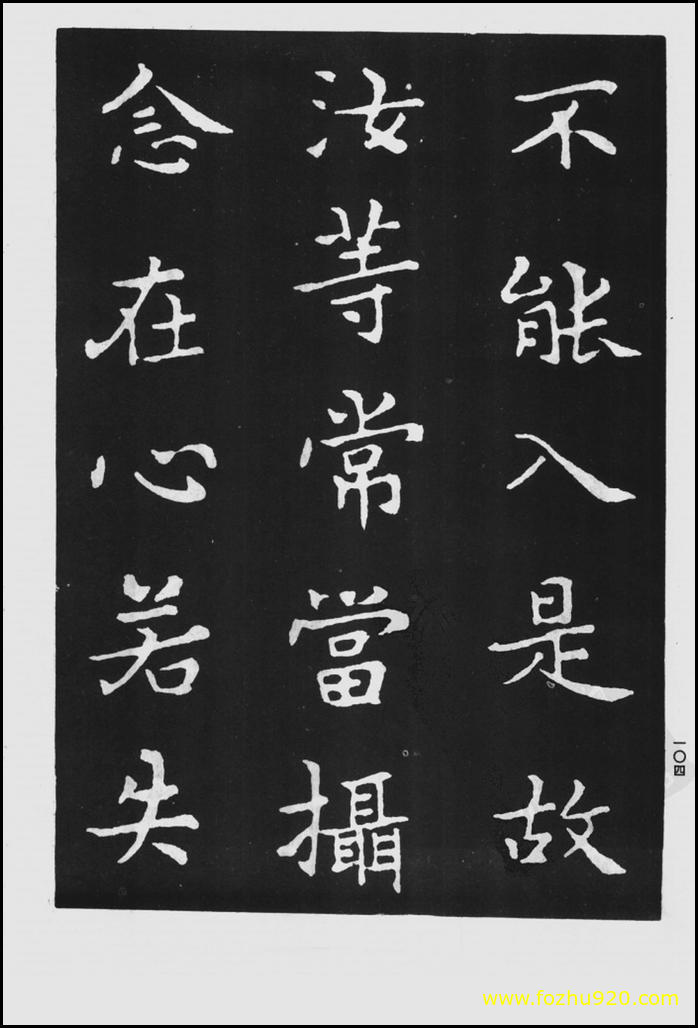 不能入是故
汝等常當攝
念在心若失
一〇四
www.fozhu920.com